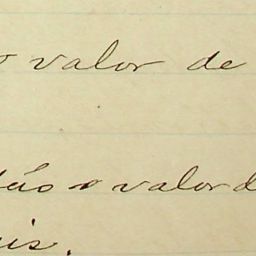 o valor de
tão o valor d
is.